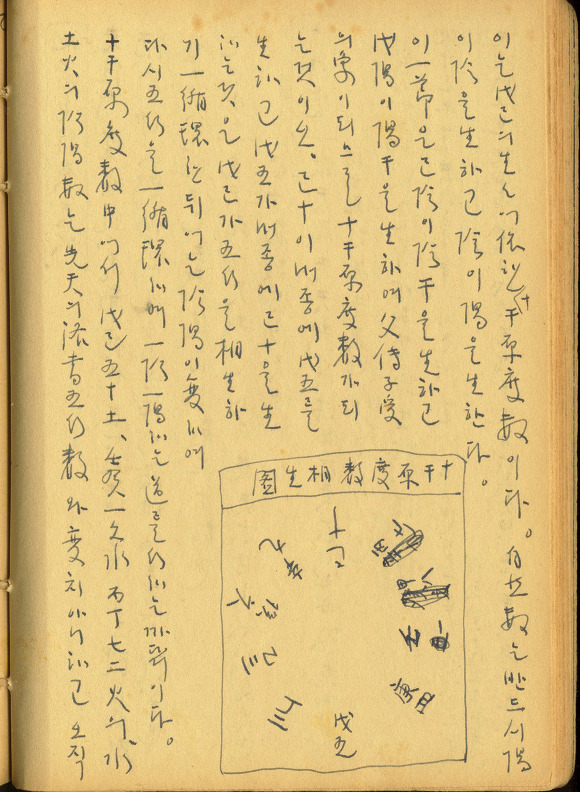 이는 戊己의 生生에 依한 十干原度數이다. 自然數는 반드시 陽
이 陰을 生하고 陰이 陽을 生한다.
이 一節은 己陰이 陰干을 生하고
戊陽이 陽干을 生하여 父傳子受
의 象이되므로 十干原度數가 되
는것이오. 己十이 내종에 戊五를
生하고 戊五가 내종에 己十을 生
하는것은 戊己가 五行을 相生하
기 一循環한 뒤에는 陰陽이 變하여
다시 五行을 一循環하며 一陰一陽하는 道를 行하는 까닭이다.
十干原度數中에서 戊己五十土, 壬癸一六水 丙丁七二火의 水
土火의 陰陽數는 先天의 洛書五行數와 變치 아니하고 오직
十干原度數相生圖
十己
戊五